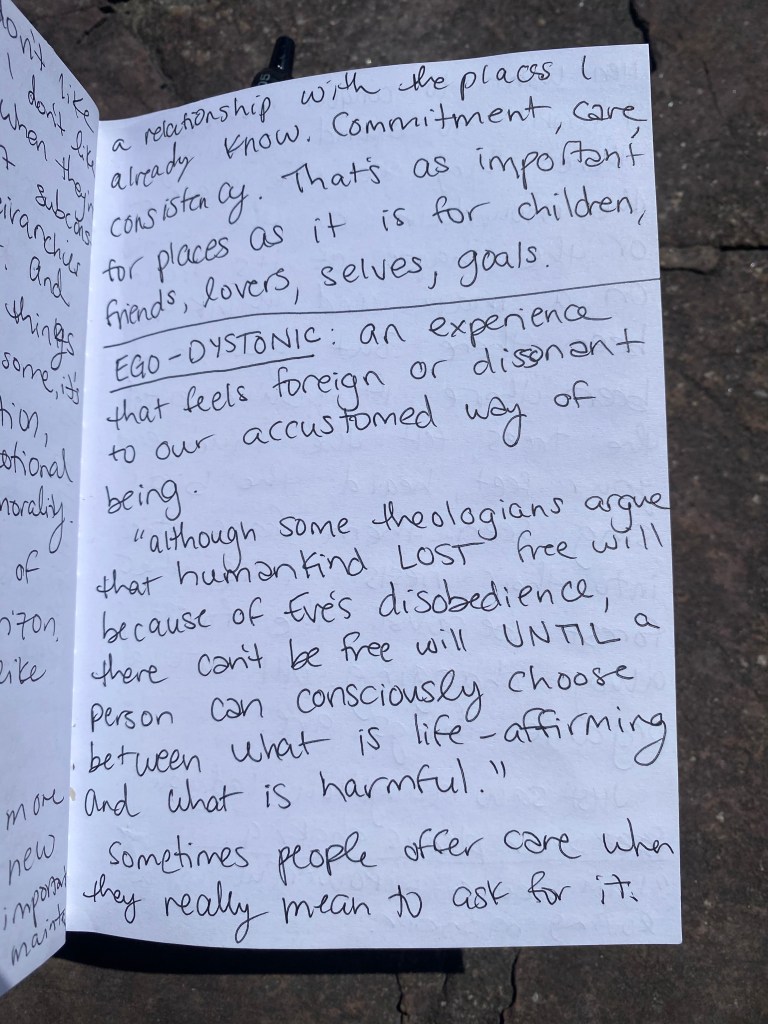 don't like
I don't like
when they'r
subcons
and
things
some, it's
tion,
otional
morality.
of
like
more
new
important
a relationship with the places I
already know. Commitment, care,
consistency. That's as important
for places as it is for children,
friends, lovers, selves, goals.
EGO-DYSTONIC: an experience
that feels foreign or dissonant
to our accustomed way of
being.
"although some theologians argue
that humankind LOST free will
because of Eve's disobedience,
there can't be free will UNTIL a
person can consciously choose
between what is life-affirming
and what is harmful."
Sometimes people offer care when
they really mean to ask for it.